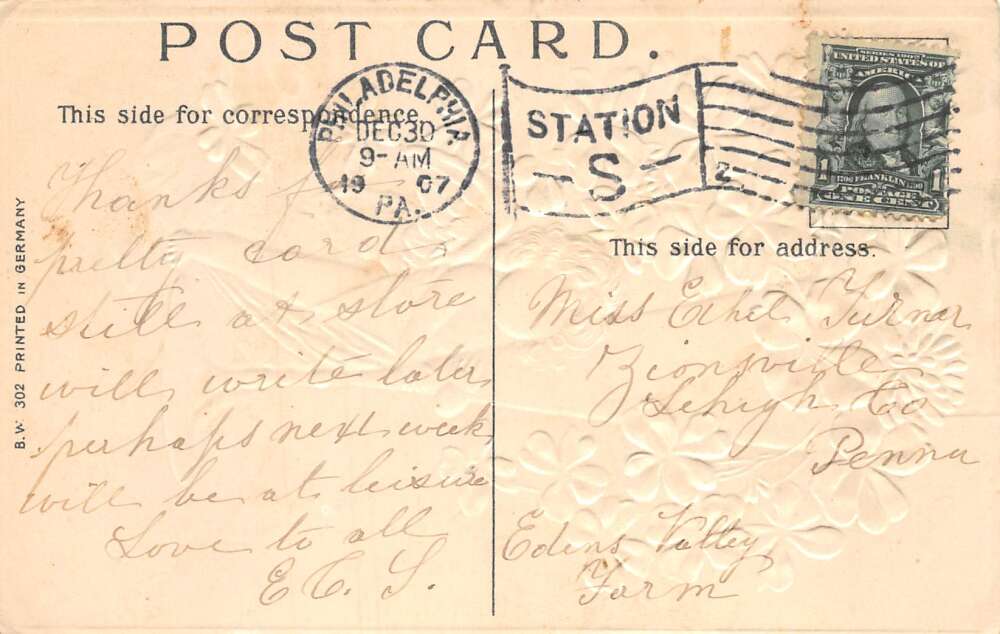 POST CARD.
This side for correspondence.
PHILADELPHIA
DEC 30
9-AM
1907
PA.
STATION
-S-
2
SERIES 1902
UNITED STATES OF
AMERICA
1 FRANKLIN 1
POSTAGE
ONE CENT
This side for address.
B.W. 302 PRINTED IN GERMANY
Thanks for
pretty card
still at store
will write later
perhaps next week
will be at leisure
Love to all
E. C. S.
Miss Ethel Turner
Zionsville
Lehigh Co
Penna
Edens Valley
Farm